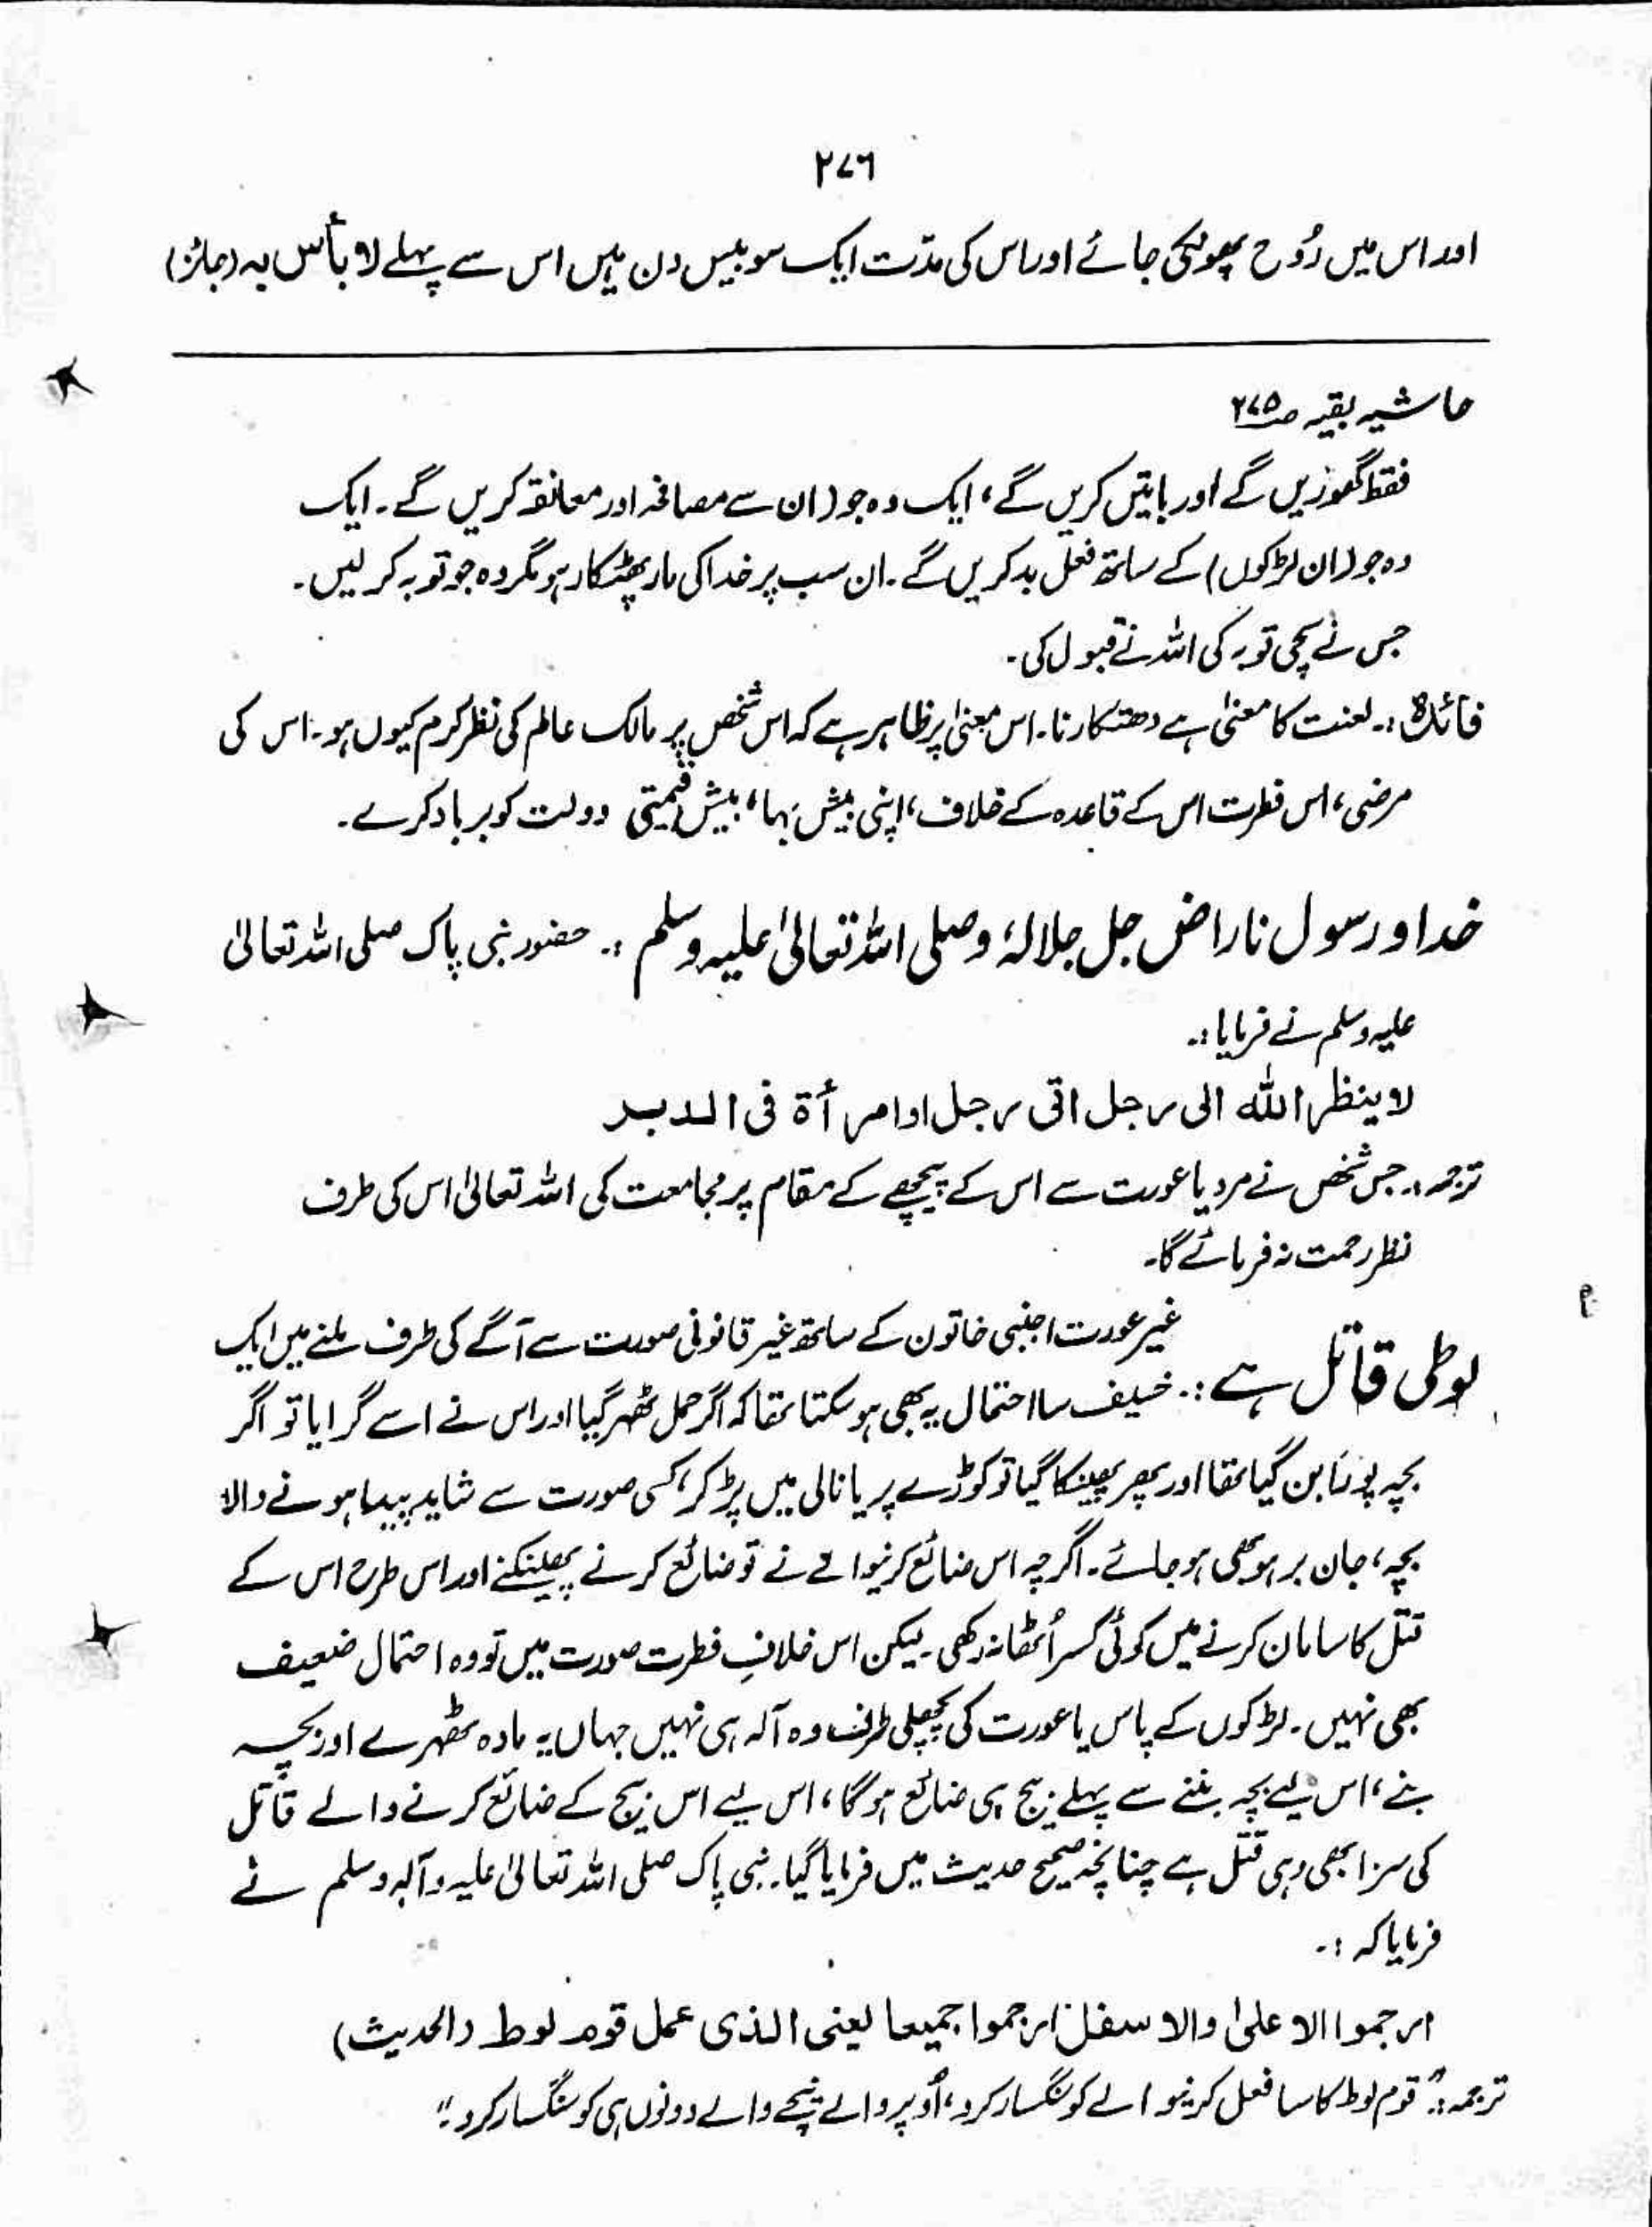 ۲۷۶
اور اس میں رُوح پھونکی جائے اور اس کی مدّت ایک سو بیس دن ہیں اس سے پہلے لا بأس بہ (جائز)
حاشیہ بقیہ ص۲۷۵
فقط گھوریں گے اور باتیں کریں گے، ایک وہ جو (ان سے مصافحہ اور معانقہ کریں گے۔ ایک
وہ جو (ان لڑکوں) کے ساتھ فعل بد کریں گے۔ ان سب پر خدا کی مار پھٹکار ہو مگر وہ جو توبہ کر لیں۔
جس نے سچی توبہ کی اللہ نے قبول کی۔
فائدہ:۔ لعنت کا معنیٰ ہے دھتکارنا۔ اس معنیٰ پر ظاہر ہے کہ اس شخص پر مالک عالم کی نظر کرم کیوں ہو۔ اس کی
مرضی، اس فطرت اس کے قاعدہ کے خلاف، اپنی بیش بہا، بیش قیمتی دولت کو برباد کرے۔
خدا و رسول ناراض جل جلالہٗ وصلی اللہ تعالیٰ علیہ وسلم :۔ حضور نبی پاک صلی اللہ تعالیٰ
علیہ وسلم نے فرمایا :۔
لا ینظر اللّٰہ الی رجل اتی رجل او امرأۃ فی الدبر
ترجمہ:۔ جس شخص نے مرد یا عورت سے اس کے پیچھے کے مقام پر مجامعت کی اللہ تعالیٰ اس کی طرف
نظر رحمت نہ فرمائے گا۔
لوطی قاتل ہے :۔ غیر عورت اجنبی خاتون کے ساتھ غیر قانونی صورت سے آگے کی طرف ملنے میں ایک
خفیف سا احتمال یہ بھی ہو سکتا تھا کہ اگر حمل ٹھہر گیا اور اس نے اسے گرایا تو اگر
بچہ پورا بن گیا تھا اور پھر پھینکا گیا تو کوڑے پر یا نالی میں پڑ کر، کسی صورت سے شاید پیدا ہونے والا
بچہ، جان بر ہو بھی ہو جائے۔ اگرچہ اس ضائع کرنیوالے نے تو ضائع کرنے پھینکنے اور اس طرح اس کے
قتل کا سامان کرنے میں کوئی کسر اُٹھا نہ رکھی۔ لیکن اس خلافِ فطرت صورت میں تو وہ احتمال ضعیف
بھی نہیں۔ لڑکوں کے پاس یا عورت کی پچھلی طرف وہ آلہ ہی نہیں جہاں یہ مادہ ٹھہرے اور بچہ
بنے، اس لیے بچہ بننے سے پہلے بیج ہی ضائع ہوگا، اس لیے اس بیج کے ضائع کرنے والے قاتل
کی سزا بھی وہی قتل ہے چنانچہ صحیح حدیث میں فرمایا گیا۔ نبی پاک صلی اللہ تعالیٰ علیہ وآلہ وسلم نے
فرمایا کہ :۔
ارجموا الاعلیٰ والاسفل ارجموا جمیعا یعنی الذی عمل قوم لوط (الحدیث)
ترجمہ:۔ "قوم لوط کا سا فعل کرنیوالے کو سنگسار کرو، اُوپر والے نیچے والے دونوں ہی کو سنگسار کرو۔"